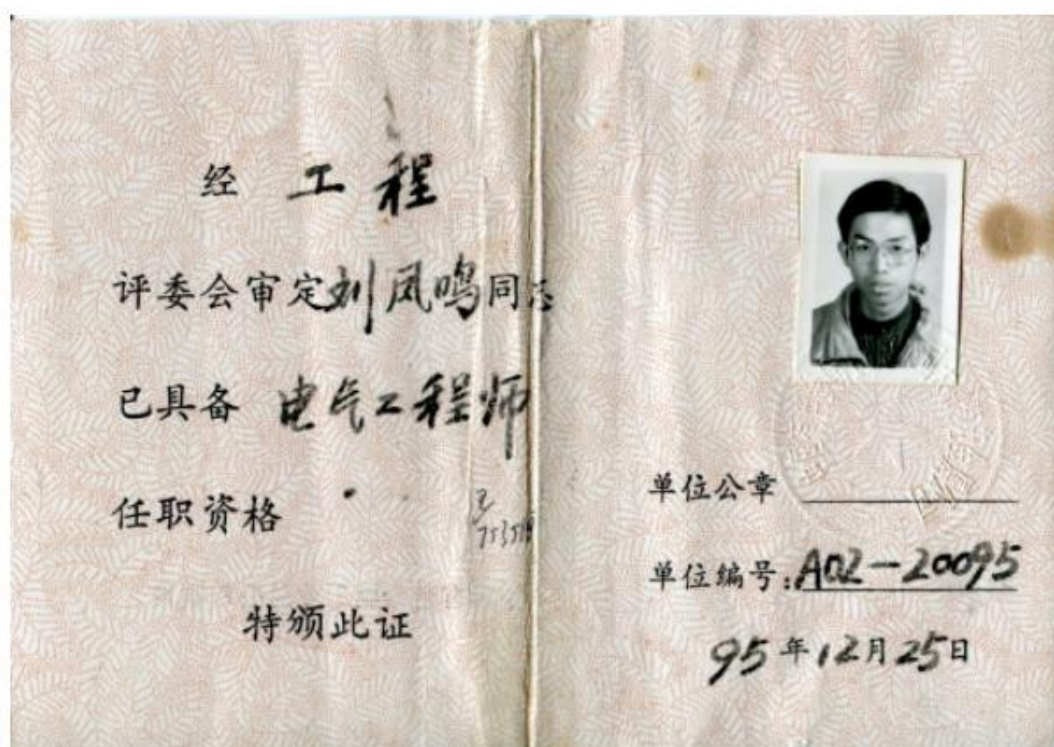 经 工程
评委会审定刘凤鸣同志
已具备 电气工程师
任职资格
特颁此证
单位公章
单位编号:A02-20095
95年12月25日